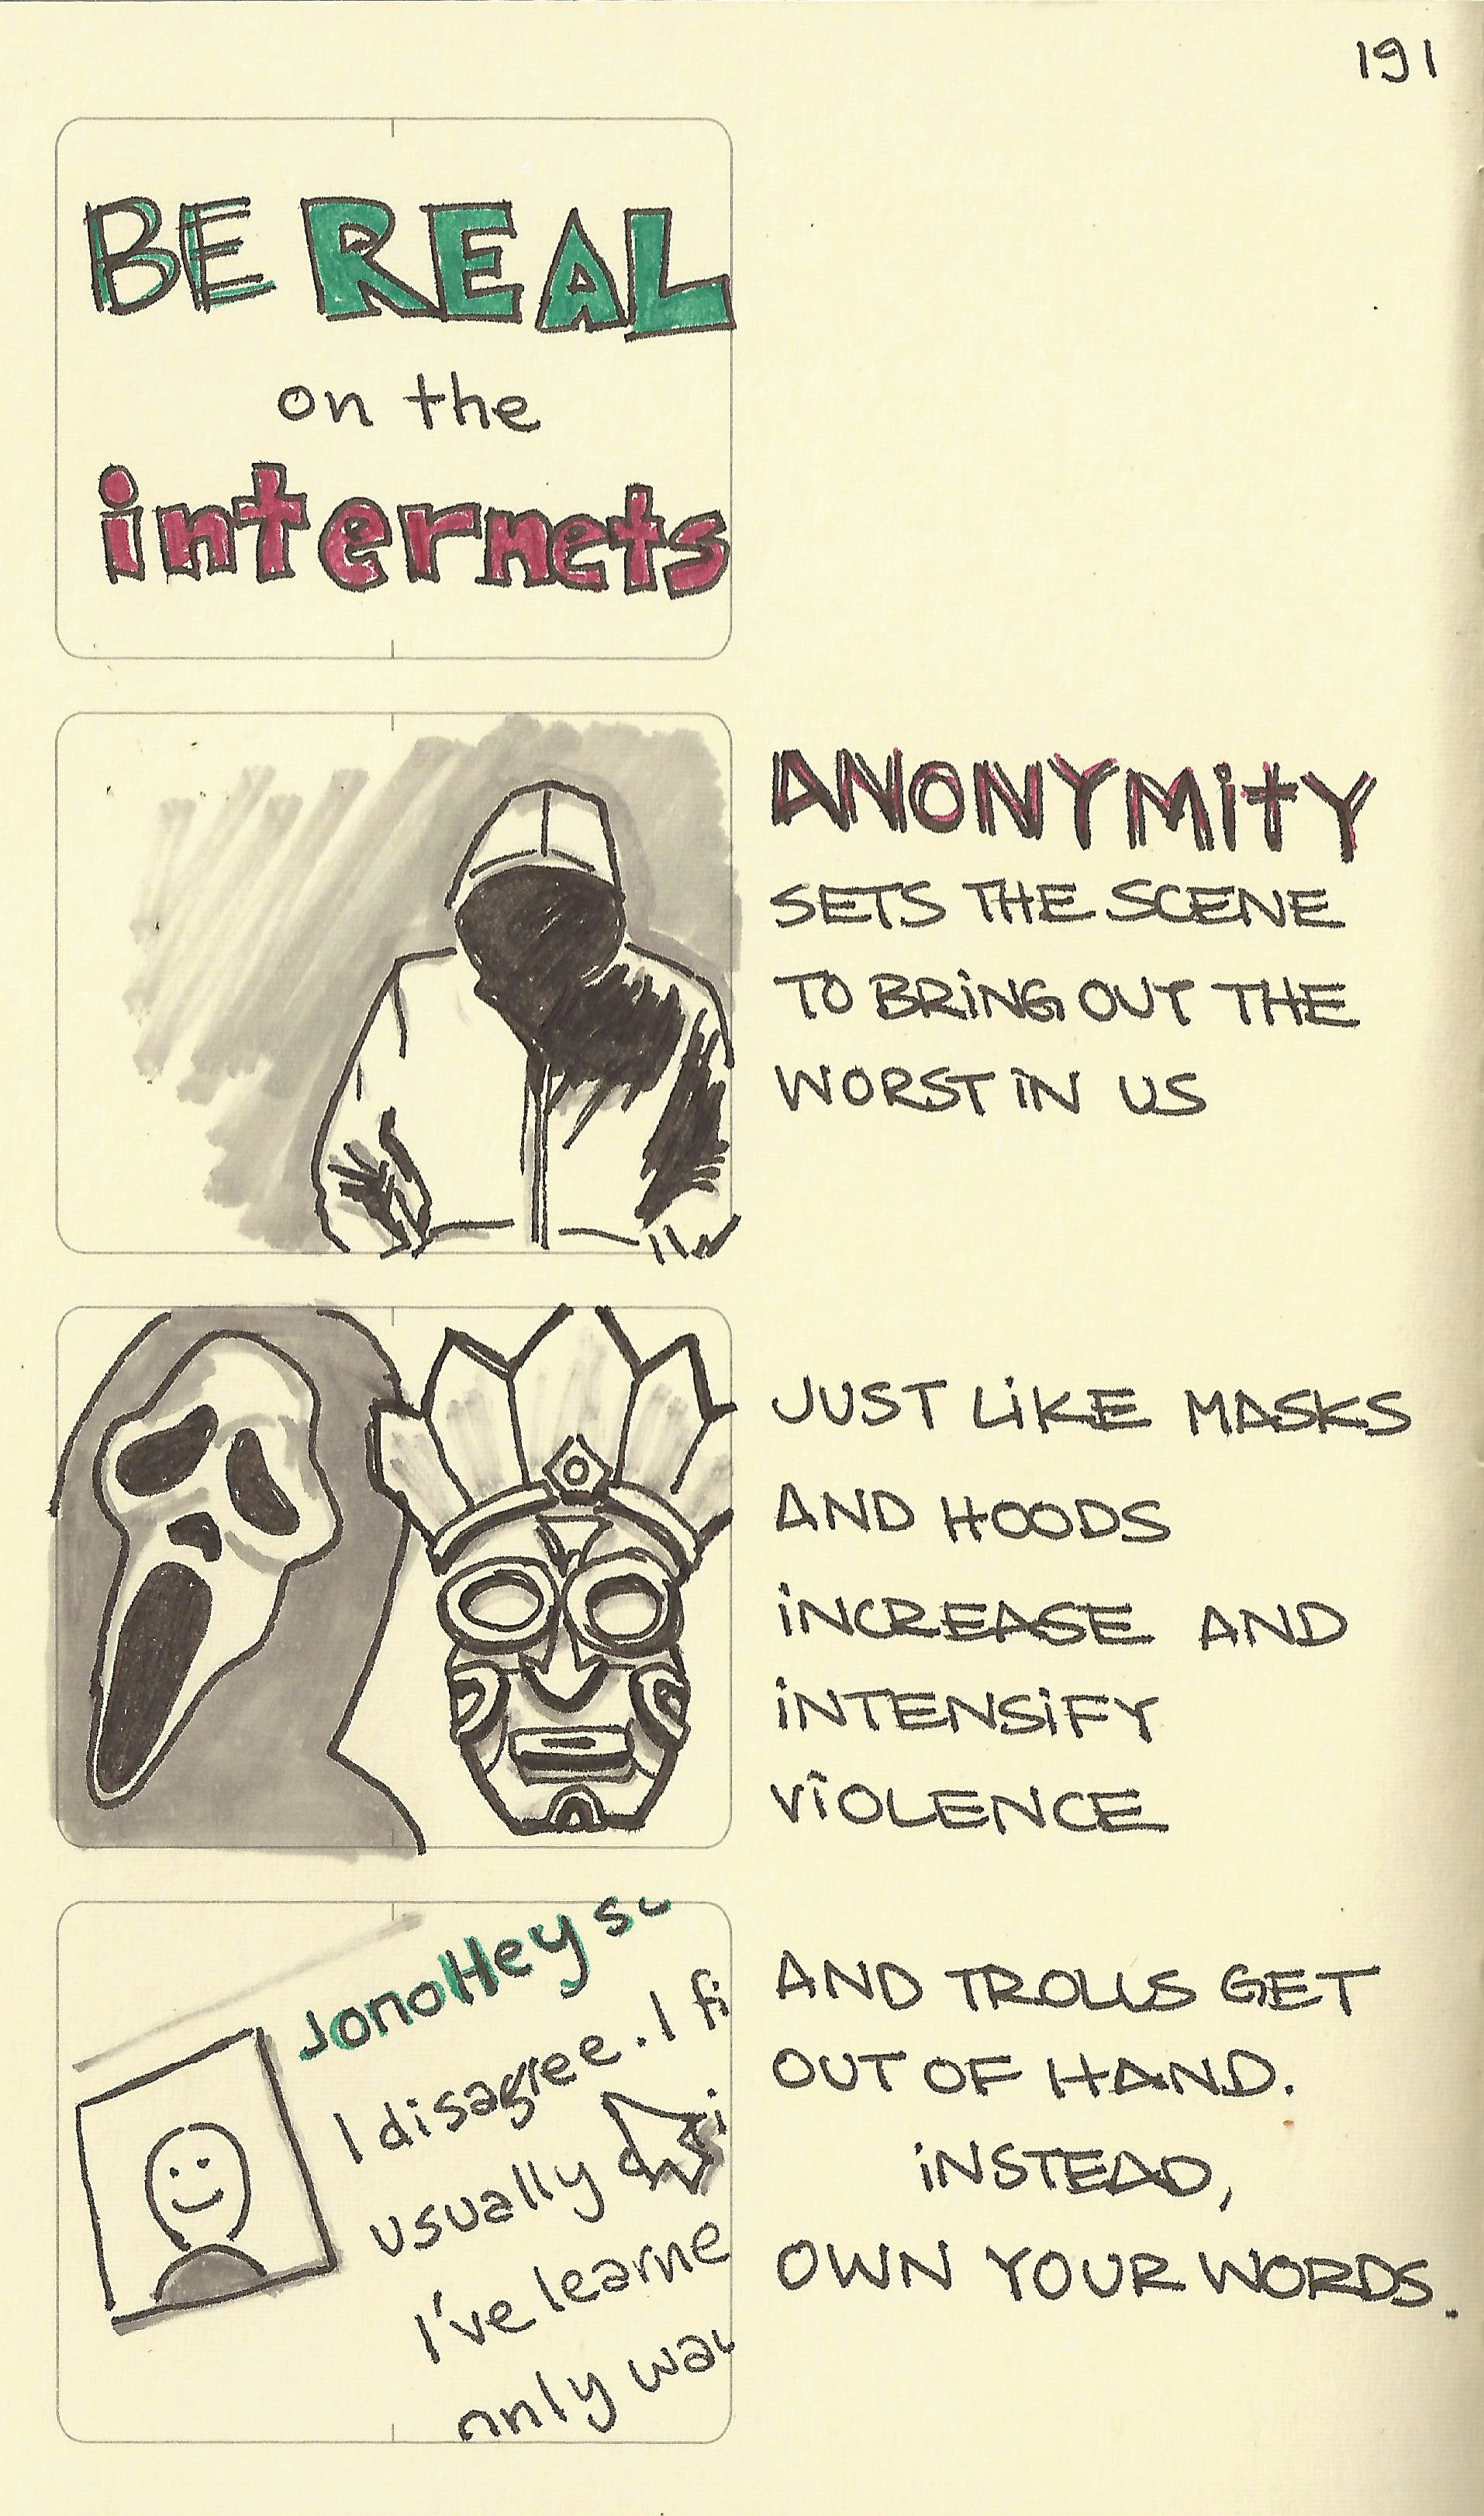 191
BE REAL
on the
internets
ANONYMity
SETS THE SCENE
TO BRiNG OUT THE
WORST iN US
JUST LiKE MASKS
AND HOODS
iNCREASE AND
iNTENSiFY
ViOLENCE
JonoHey
I disagree. I
usually
I've learne
only
AND TROLLS GET
OUT OF HAND.
iNSTEAD,
OWN YOUR WORDS.